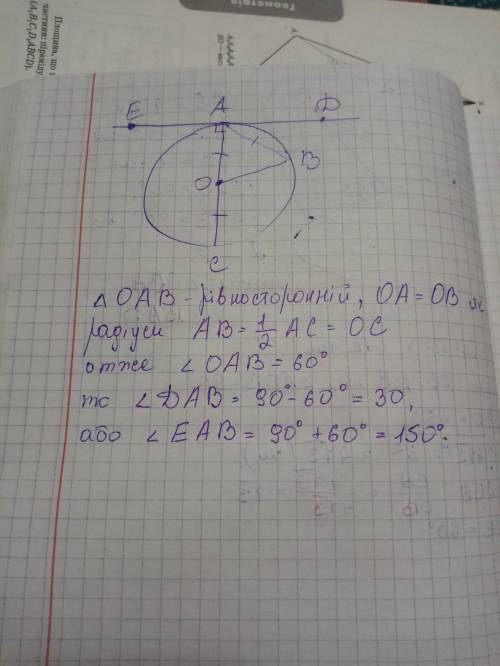 Геометрія
Площина, що
частини: піраміду
(A,B,C,D,ABCD),
A
E A D
B
O
C
△OAB - рівносторонній, OA = OB як
радіуси AB = 1/2 AC = OC
отже ∠OAB = 60°
то ∠DAB = 90° - 60° = 30,
або ∠EAB = 90° + 60° = 150°.